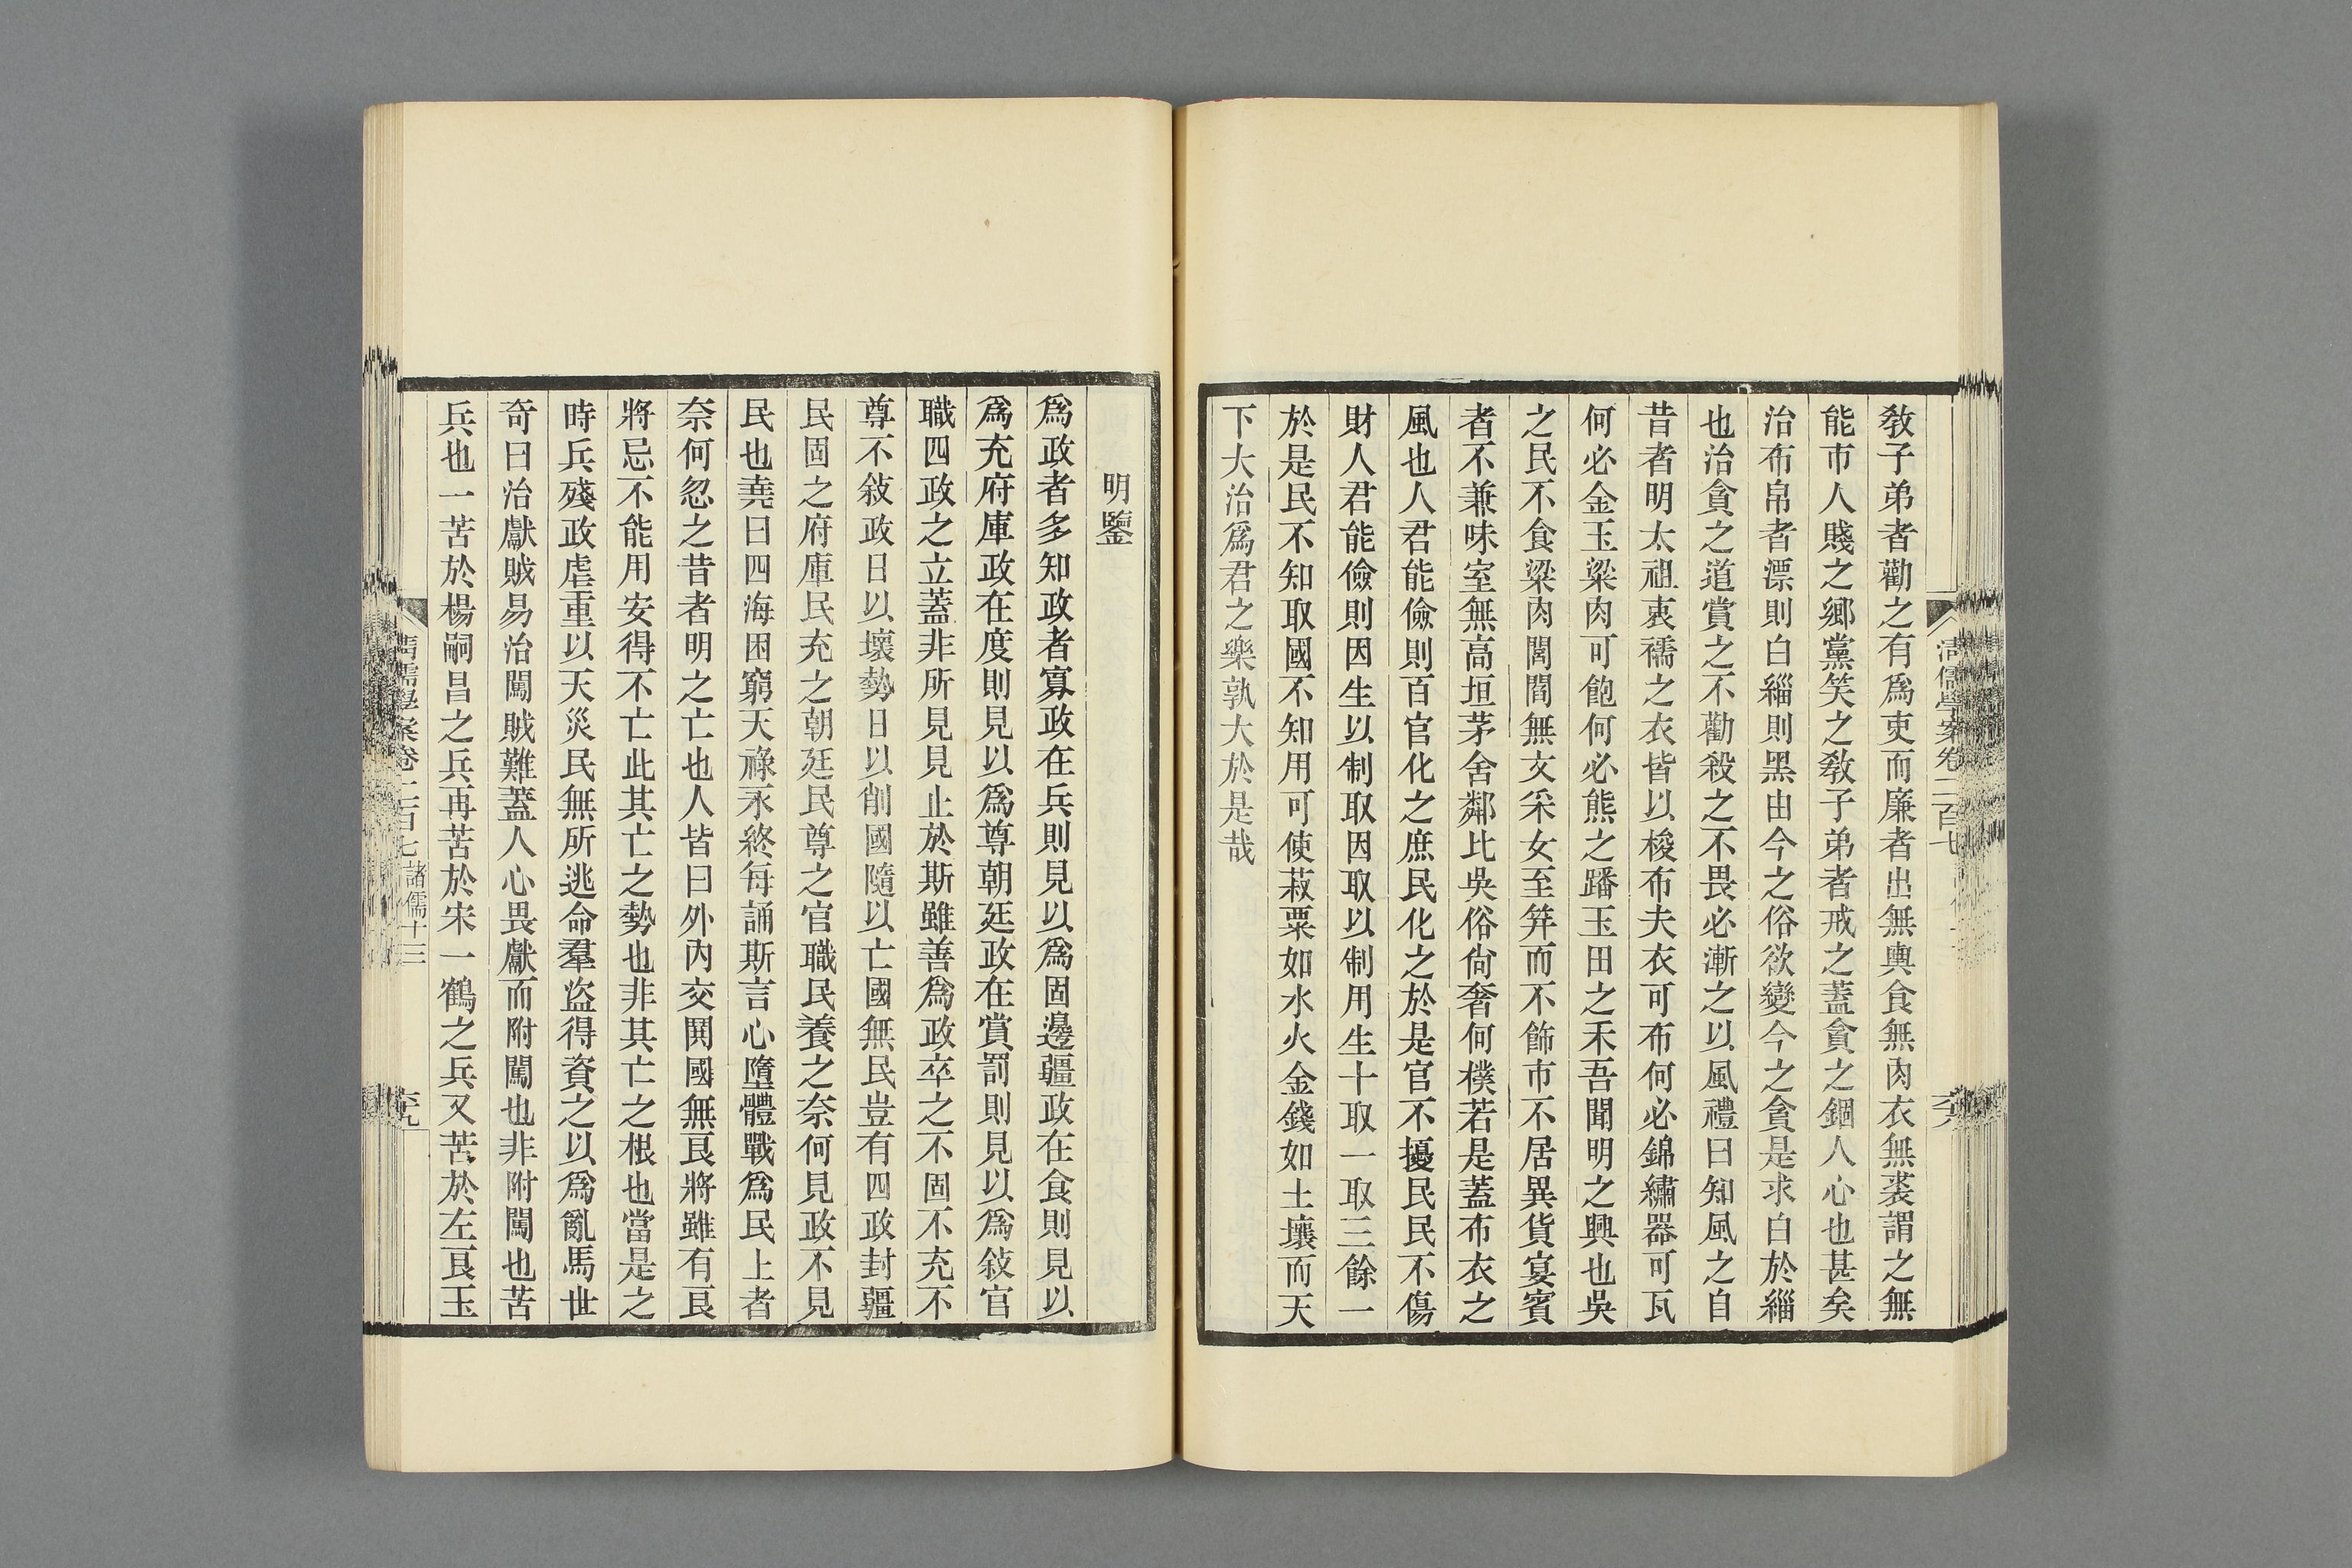 教子弟者勸之有爲吏而廉者出無輿食無肉衣無裘謂之無
能市人賤之鄉黨笑之教子弟者戒之蓋貪之錮人心也甚矣
治布帛者漂則白緇則黑由今之俗欲變今之貪是求白於緇
也治貪之道賞之不勸殺之不畏必漸之以風禮曰知風之自
昔者明太祖衷襦之衣皆以梭布夫衣可布何必錦繡器可瓦
何必金玉粱肉可飽何必熊之蹯玉田之禾吾聞明之興也吳
之民不食粱肉閭閻無文采女至笄而不飾市不居異貨宴賓
者不兼味室無高垣茅舍鄰比吳俗尙奢何樸若是蓋布衣之
風也人君能儉則百官化之庶民化之於是官不擾民民不傷
財人君能儉則因生以制取因取以制用生十取一取三餘一
於是民不知取國不知用可使菽粟如水火金錢如土壤而天
下大治爲君之樂孰大於是哉
清儒學案卷二百七
六八
明鑒
爲政者多知政者寡政在兵則見以爲固邊疆政在食則見以
爲充府庫政在度則見以爲尊朝廷政在賞罰則見以爲敍官
職四政之立蓋非所見見止於斯雖善爲政卒之不固不充不
尊不敍政日以壞勢日以削國隨以亡國無民豈有四政封疆
民固之府庫民充之朝廷民尊之官職民養之奈何見政不見
民也堯曰四海困窮天祿永終每誦斯言心墮體戰爲民上者
奈何忽之昔者明之亡也人皆曰外內交鬨國無良將雖有良
將忌不能用安得不亡此其亡之勢也非其亡之根也當是之
時兵殘政虐重以天災民無所逃命羣盜得資之以爲亂馬世
奇曰治獻賊易治闖賊難蓋人心畏獻而附闖也非附闖也苦
兵也一苦於楊嗣昌之兵再苦於宋一鶴之兵又苦於左良玉
清儒學案卷二百七 諸儒十三
六九